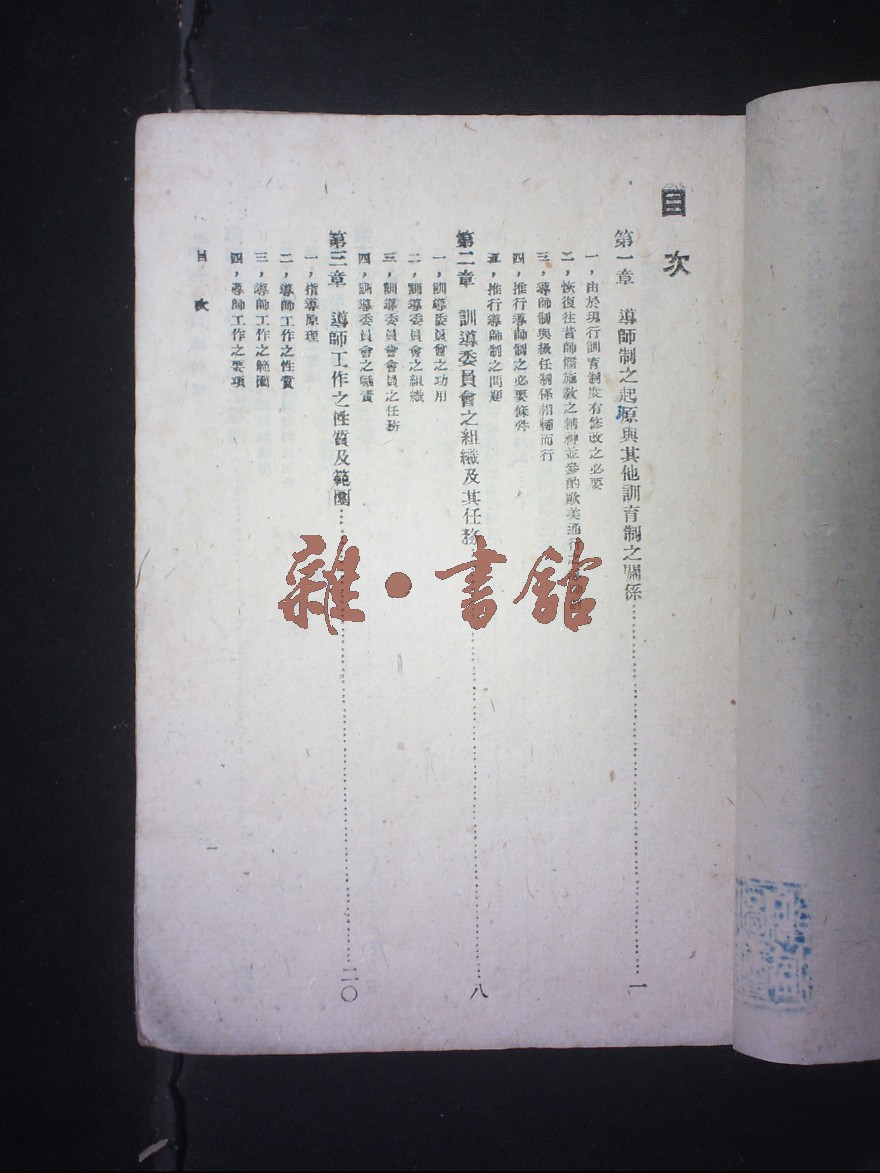 目次
第一章 導師制之起原與其他訓育制之關係……一
一，由於現行訓育制度有修改之必要
二，恢復往昔師儒施教之精神並參酌歐美通行之
三，導師制與級任制係相輔而行
四，推行導師制之必要條件
五，推行導師制之問題
第二章 訓導委員會之組織及其任務……八
一，訓導委員會之功用
二，訓導委員會之組織
三，訓導委員會會員之任務
四，訓導委員會之職責
第三章 導師工作之性質及範圍……二〇
一，指導原理
二，導師工作之性質
三，導師工作之範圍
四，導師工作之要項
目次
一
雜·書館